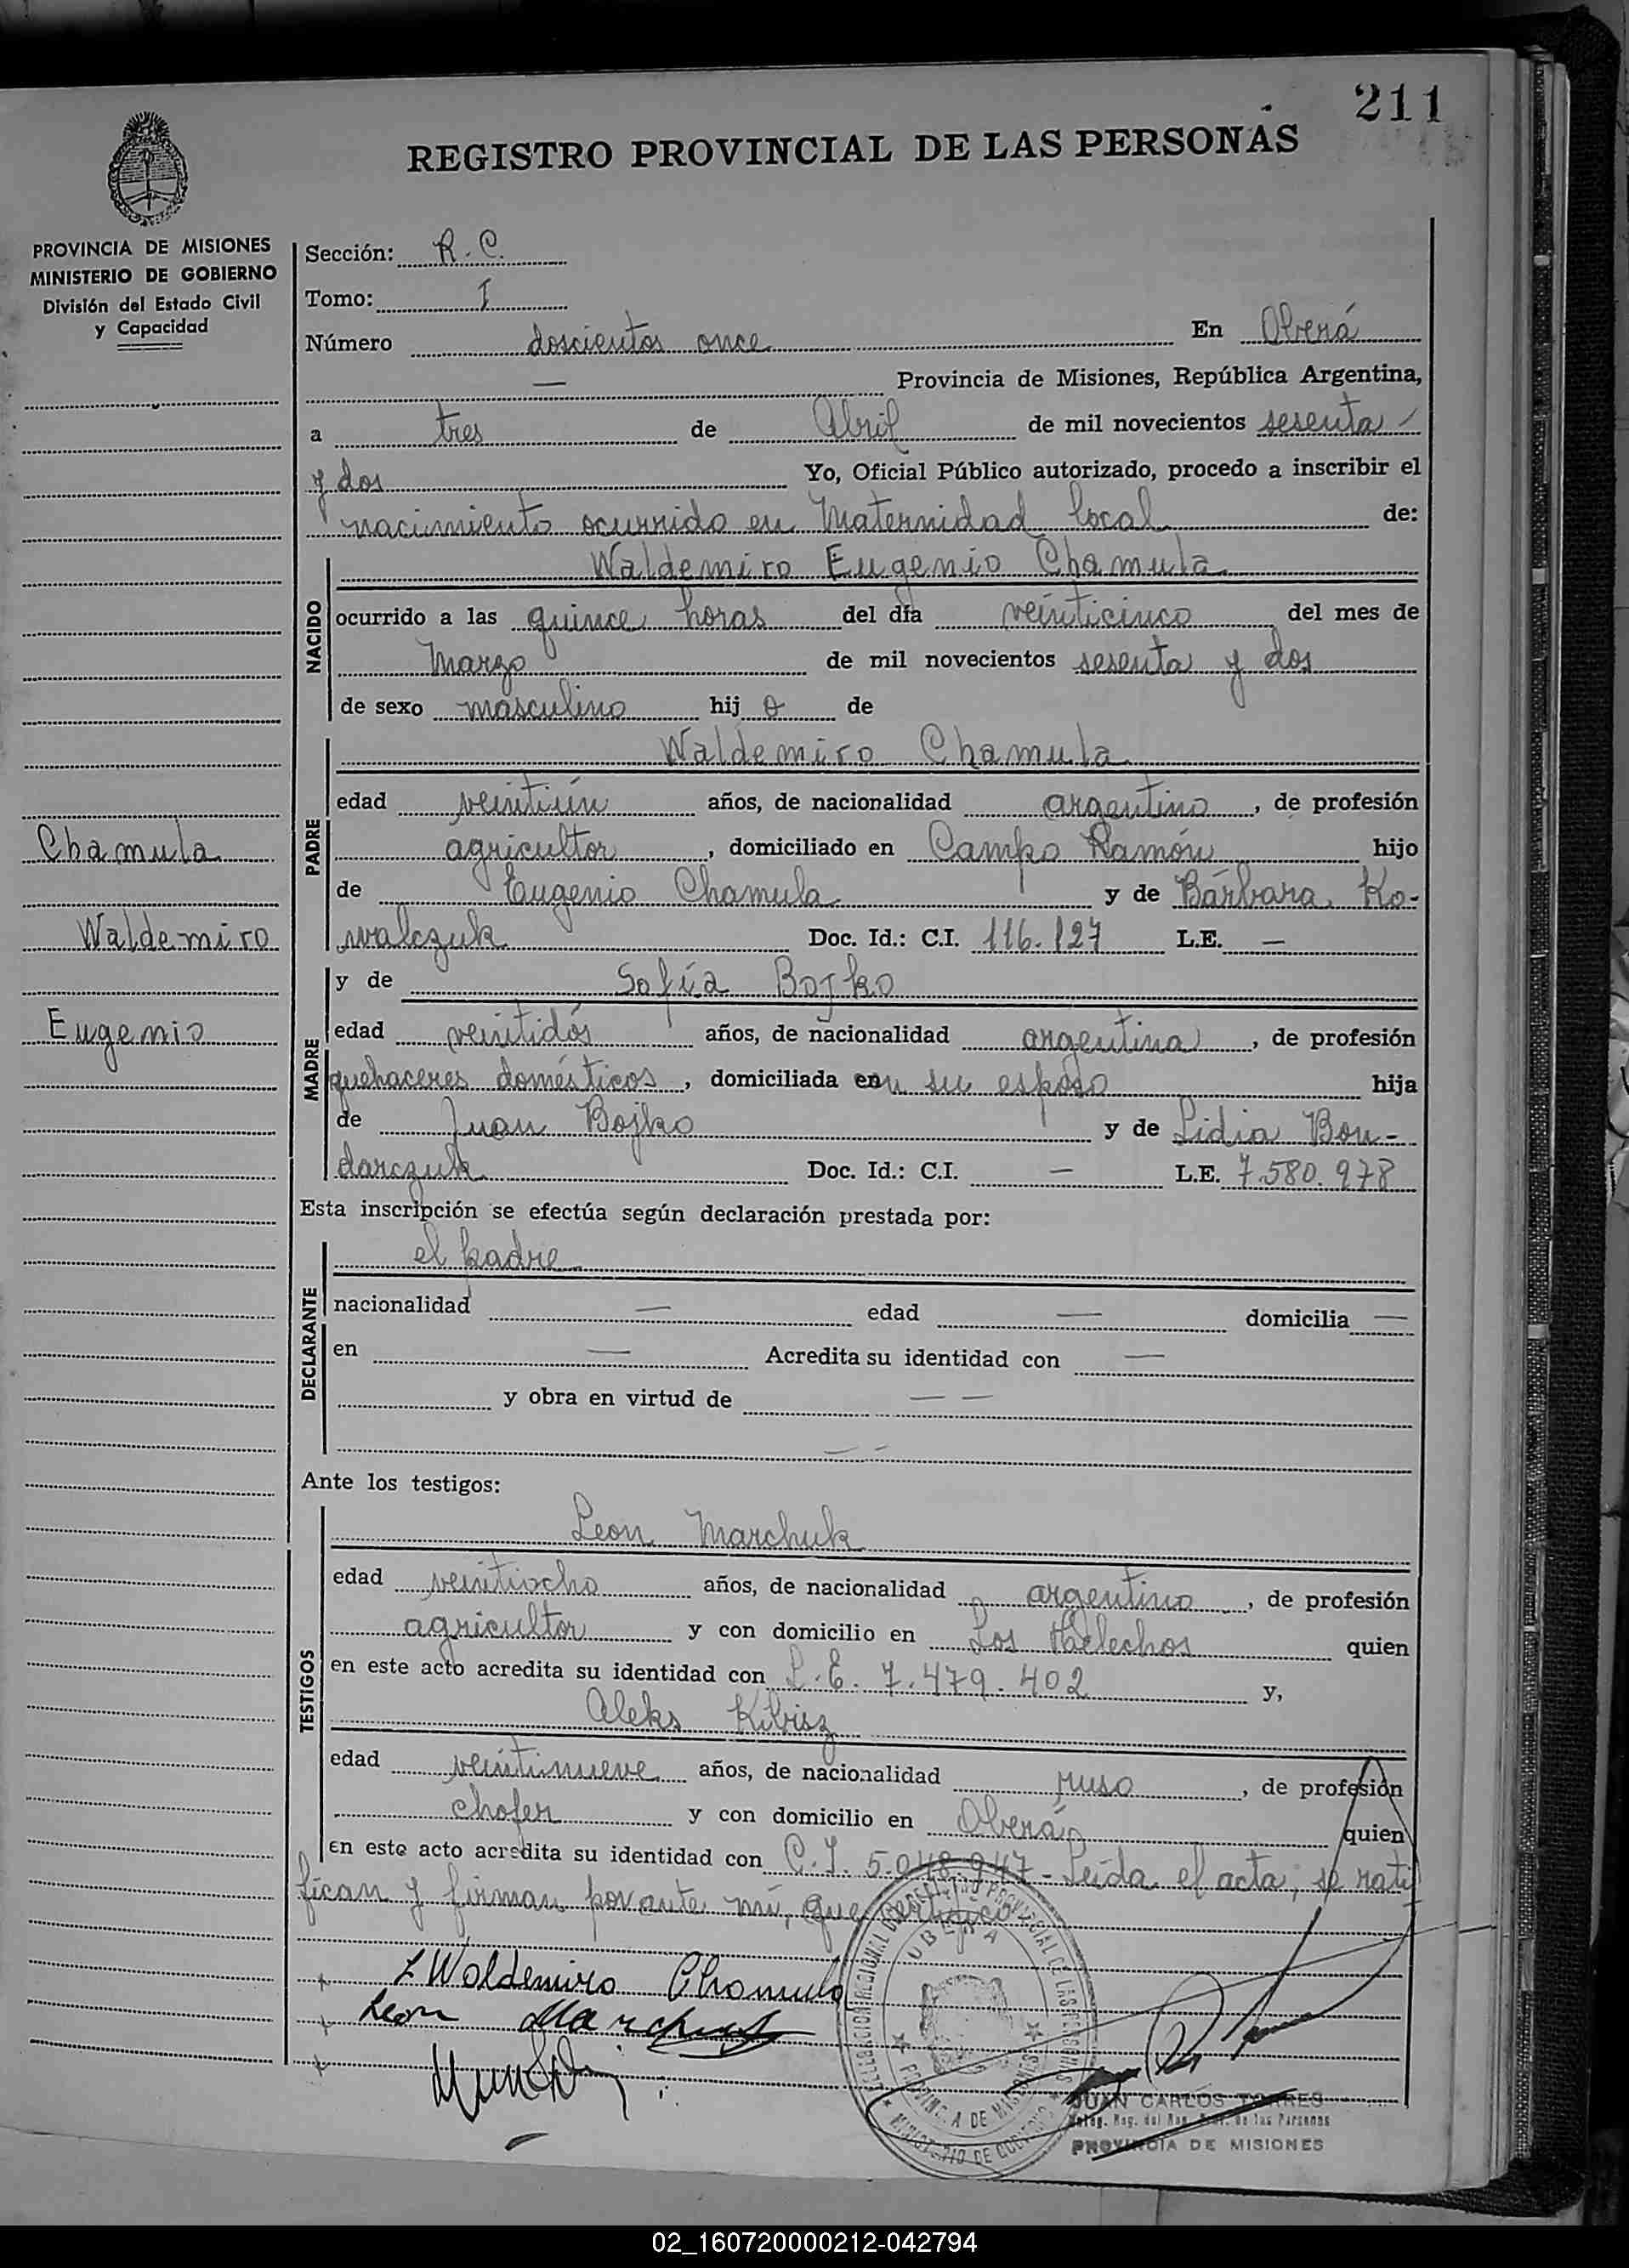 211
REGISTRO PROVINCIAL DE LAS PERSONAS
PROVINCIA DE MISIONES
MINISTERIO DE GOBIERNO
División del Estado Civil
y Capacidad
Sección: R. C.
Tomo: I
Número doscientos once En Oberá
— Provincia de Misiones, República Argentina,
a tres de Abril de mil novecientos sesenta
y dos Yo, Oficial Público autorizado, procedo a inscribir el
nacimiento ocurrido en Maternidad local de:
NACIDO
Waldemiro Eugenio Chamula
ocurrido a las quince horas del día veinticinco del mes de
Marzo de mil novecientos sesenta y dos
de sexo masculino hij o de
PADRE
Waldemiro Chamula
edad veintiún años, de nacionalidad argentino, de profesión
agricultor, domiciliado en Campo Ramón hijo
de Eugenio Chamula y de Bárbara Ko-
walczuk Doc. Id.: C.I. 116.127 L.E. —
Chamula
Waldemiro
Eugenio
MADRE
y de Sofía Bojko
edad veintidós años, de nacionalidad argentina, de profesión
quehaceres domésticos, domiciliada en su esposo hija
de Juan Bojko y de Lidia Bon-
darczuk Doc. Id.: C.I. — L.E. 7.580.978
Esta inscripción se efectúa según declaración prestada por:
DECLARANTE
el padre
nacionalidad — edad — domicilia —
en — Acredita su identidad con —
y obra en virtud de — —
— —
Ante los testigos:
TESTIGOS
Leon Marchuk
edad veintiocho años, de nacionalidad argentino, de profesión
agricultor y con domicilio en Los Helechos quien
en este acto acredita su identidad con L.E. 7.479.402 y,
Aleks Kibisz
edad veintinueve años, de nacionalidad ruso, de profesión
chofer y con domicilio en Oberá quien
en este acto acredita su identidad con C.I. 5.048.947 - Leída el acta, se rati
fican y firman por ante mí, que certifico
Waldemiro Chamula
Leon Marchuk
OBERA
PROVINCIA DE MISIONES
MINISTERIO DE GOBIERNO
JUAN CARLOS TORRES
de las Personas
PROVINCIA DE MISIONES
02_160720000212-042794